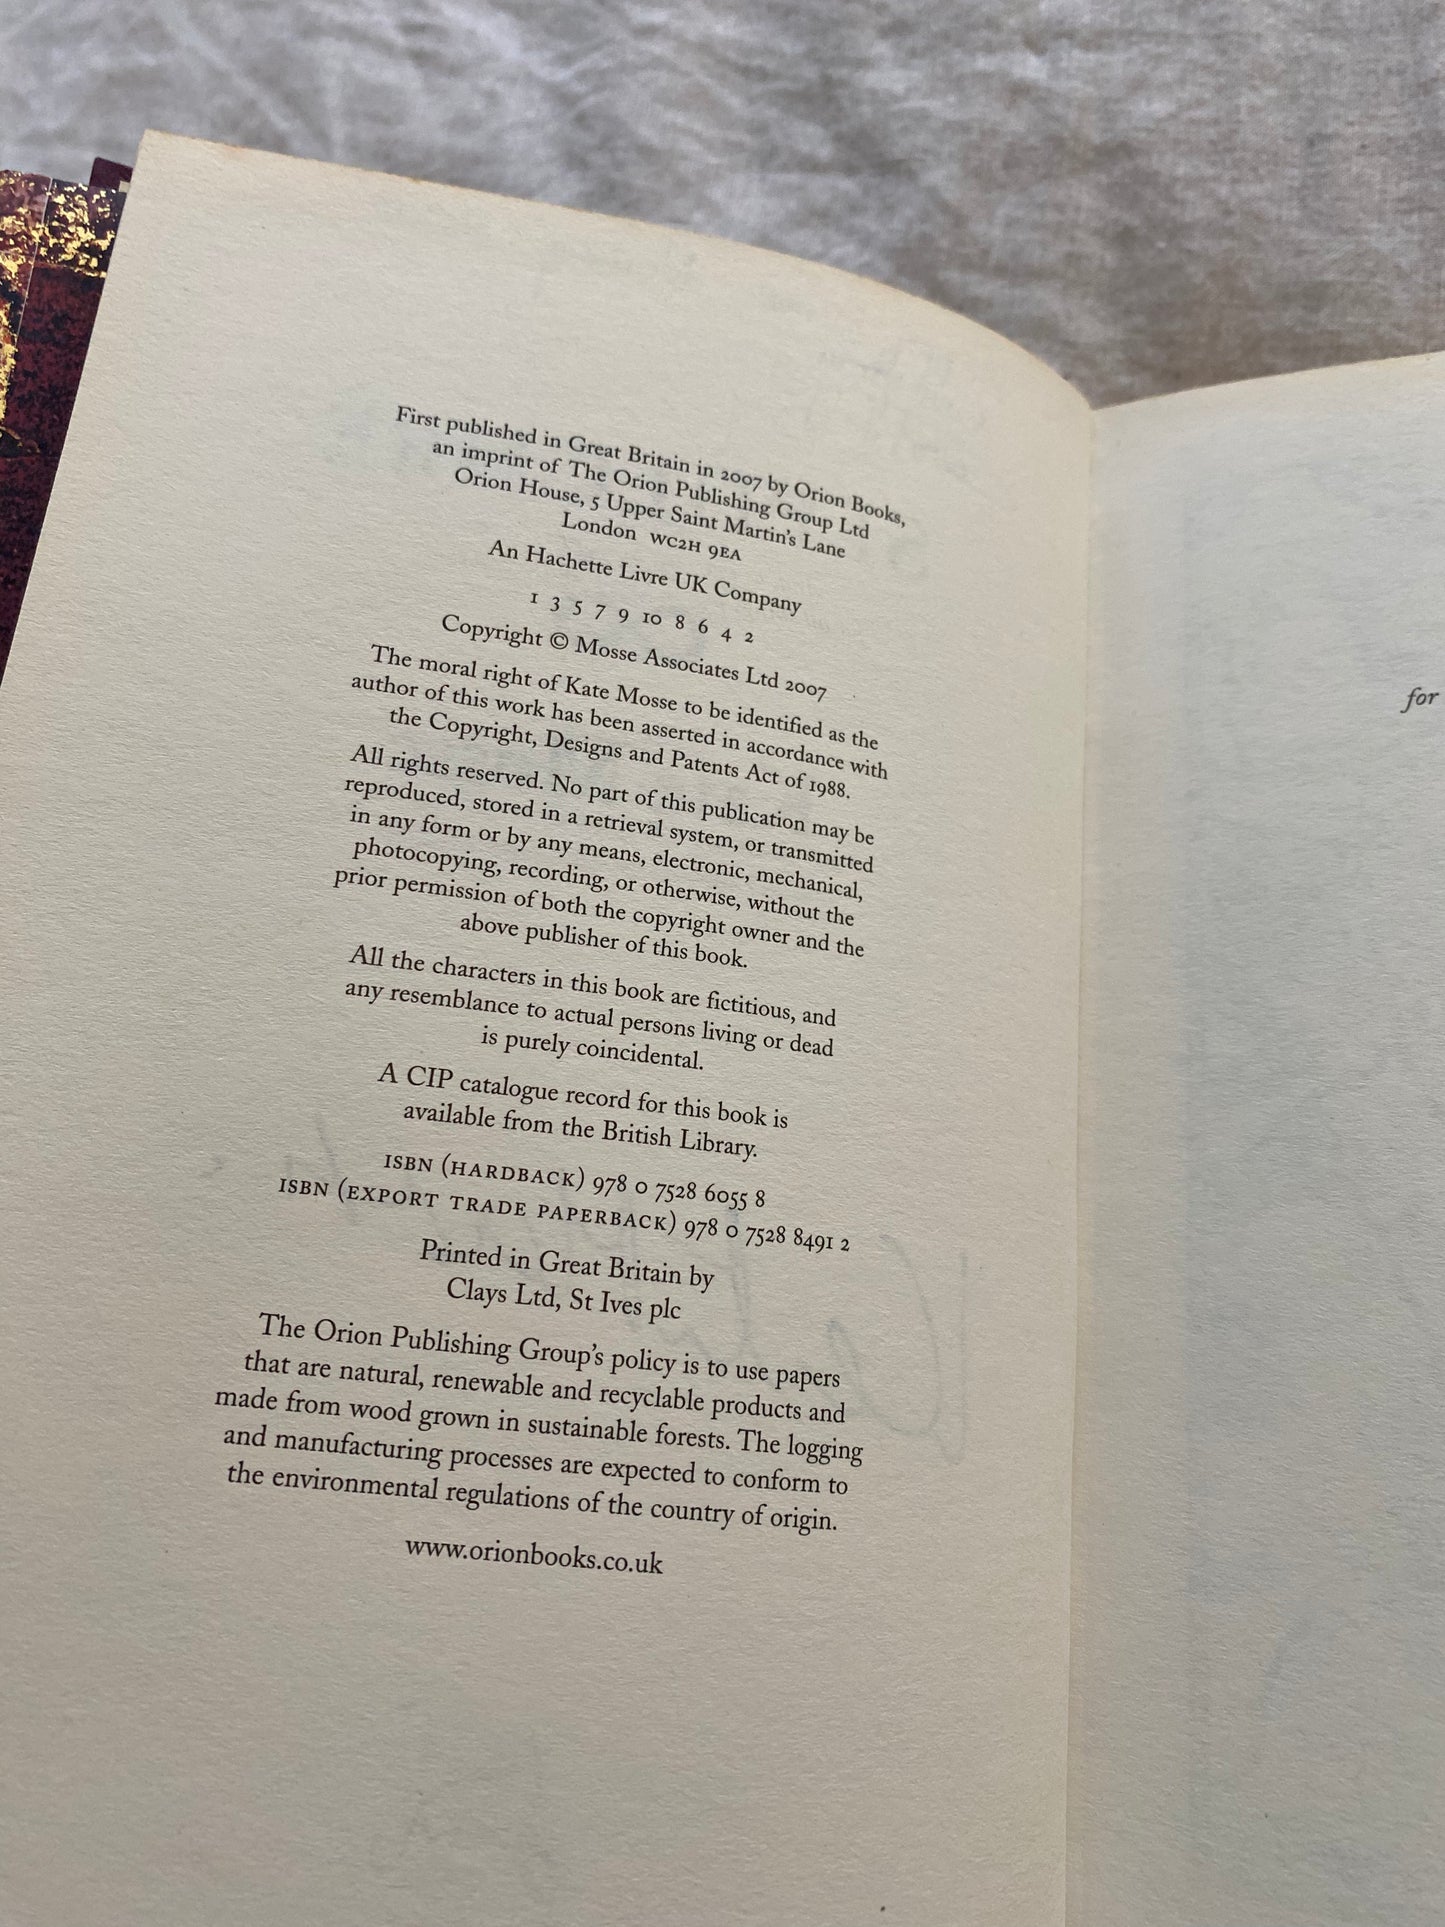 First published in Great Britain in 2007 by Orion Books,
an imprint of The Orion Publishing Group Ltd
Orion House, 5 Upper Saint Martin's Lane
London WC2H 9EA
An Hachette Livre UK Company
1 3 5 7 9 10 8 6 4 2
Copyright © Mosse Associates Ltd 2007
The moral right of Kate Mosse to be identified as the
author of this work has been asserted in accordance with
the Copyright, Designs and Patents Act of 1988.
All rights reserved. No part of this publication may be
reproduced, stored in a retrieval system, or transmitted
in any form or by any means, electronic, mechanical,
photocopying, recording, or otherwise, without the
prior permission of both the copyright owner and the
above publisher of this book.
All the characters in this book are fictitious, and
any resemblance to actual persons living or dead
is purely coincidental.
A CIP catalogue record for this book is
available from the British Library.
ISBN (HARDBACK) 978 0 7528 6055 8
ISBN (EXPORT TRADE PAPERBACK) 978 0 7528 8491 2
Printed in Great Britain by
Clays Ltd, St Ives plc
The Orion Publishing Group's policy is to use papers
that are natural, renewable and recyclable products and
made from wood grown in sustainable forests. The logging
and manufacturing processes are expected to conform to
the environmental regulations of the country of origin.
www.orionbooks.co.uk
for